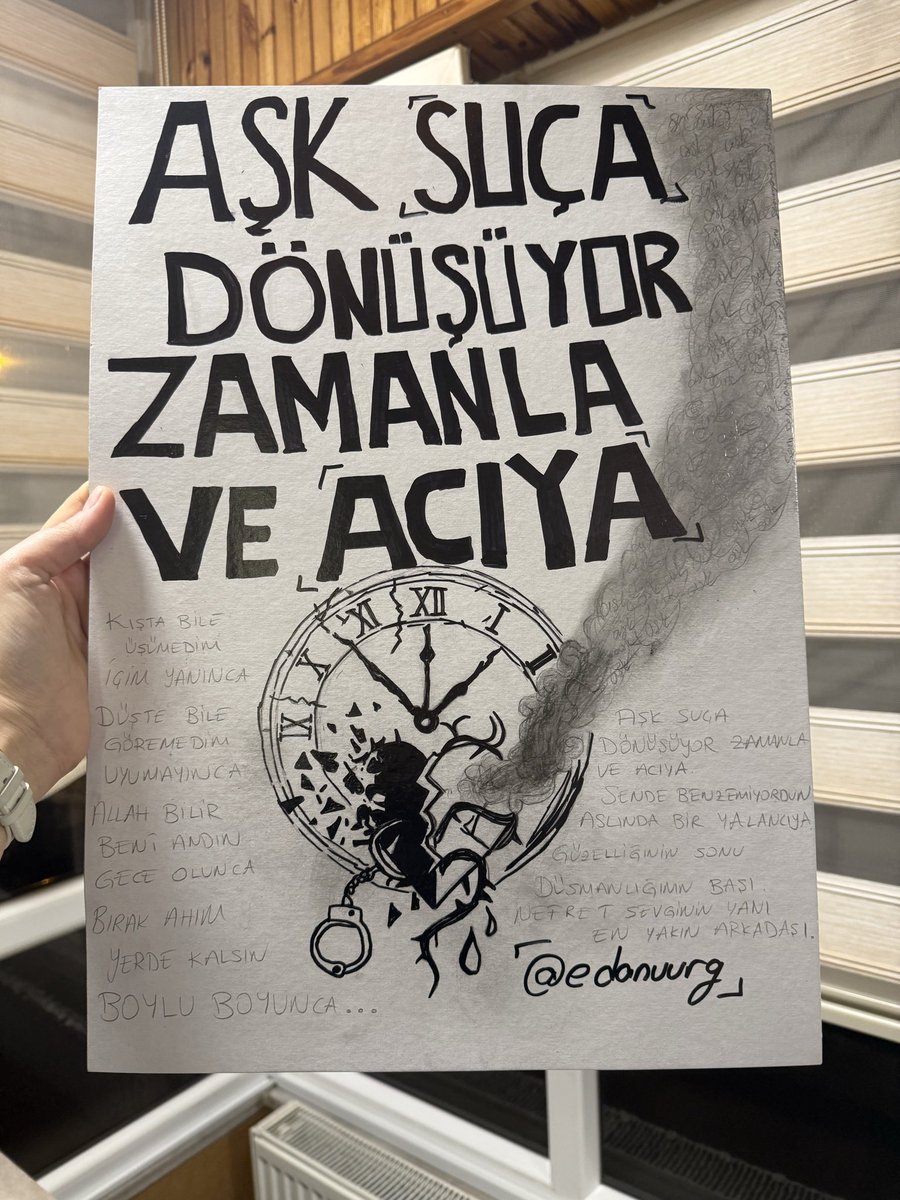 AŞK SUÇA
DÖNÜŞÜYOR
ZAMANLA
VE ACIYA
XII
I
II
IX
X
X
IX
KIŞTA BİLE
ÜŞÜMEDİM
İÇİM YANINCA
DÜŞTE BİLE
GÖREMEDİM
UYUMAYINCA
ALLAH BİLİR
BENİ ANDIN
GECE OLUNCA
BIRAK AHIM
YERDE KALSIN
BOYLU BOYUNCA...
AŞK SUÇA
DÖNÜŞÜYOR ZAMANLA
VE ACIYA.
SENDE BENZEMİYORDUN
ASLINDA BİR YALANCIYA
GÜZELLİĞİNİN SONU
DÜŞMANLIĞIMIN BAŞI.
NEFRET SEVGİNİN YANI
EN YAKIN ARKADAŞI.
@edanuurg